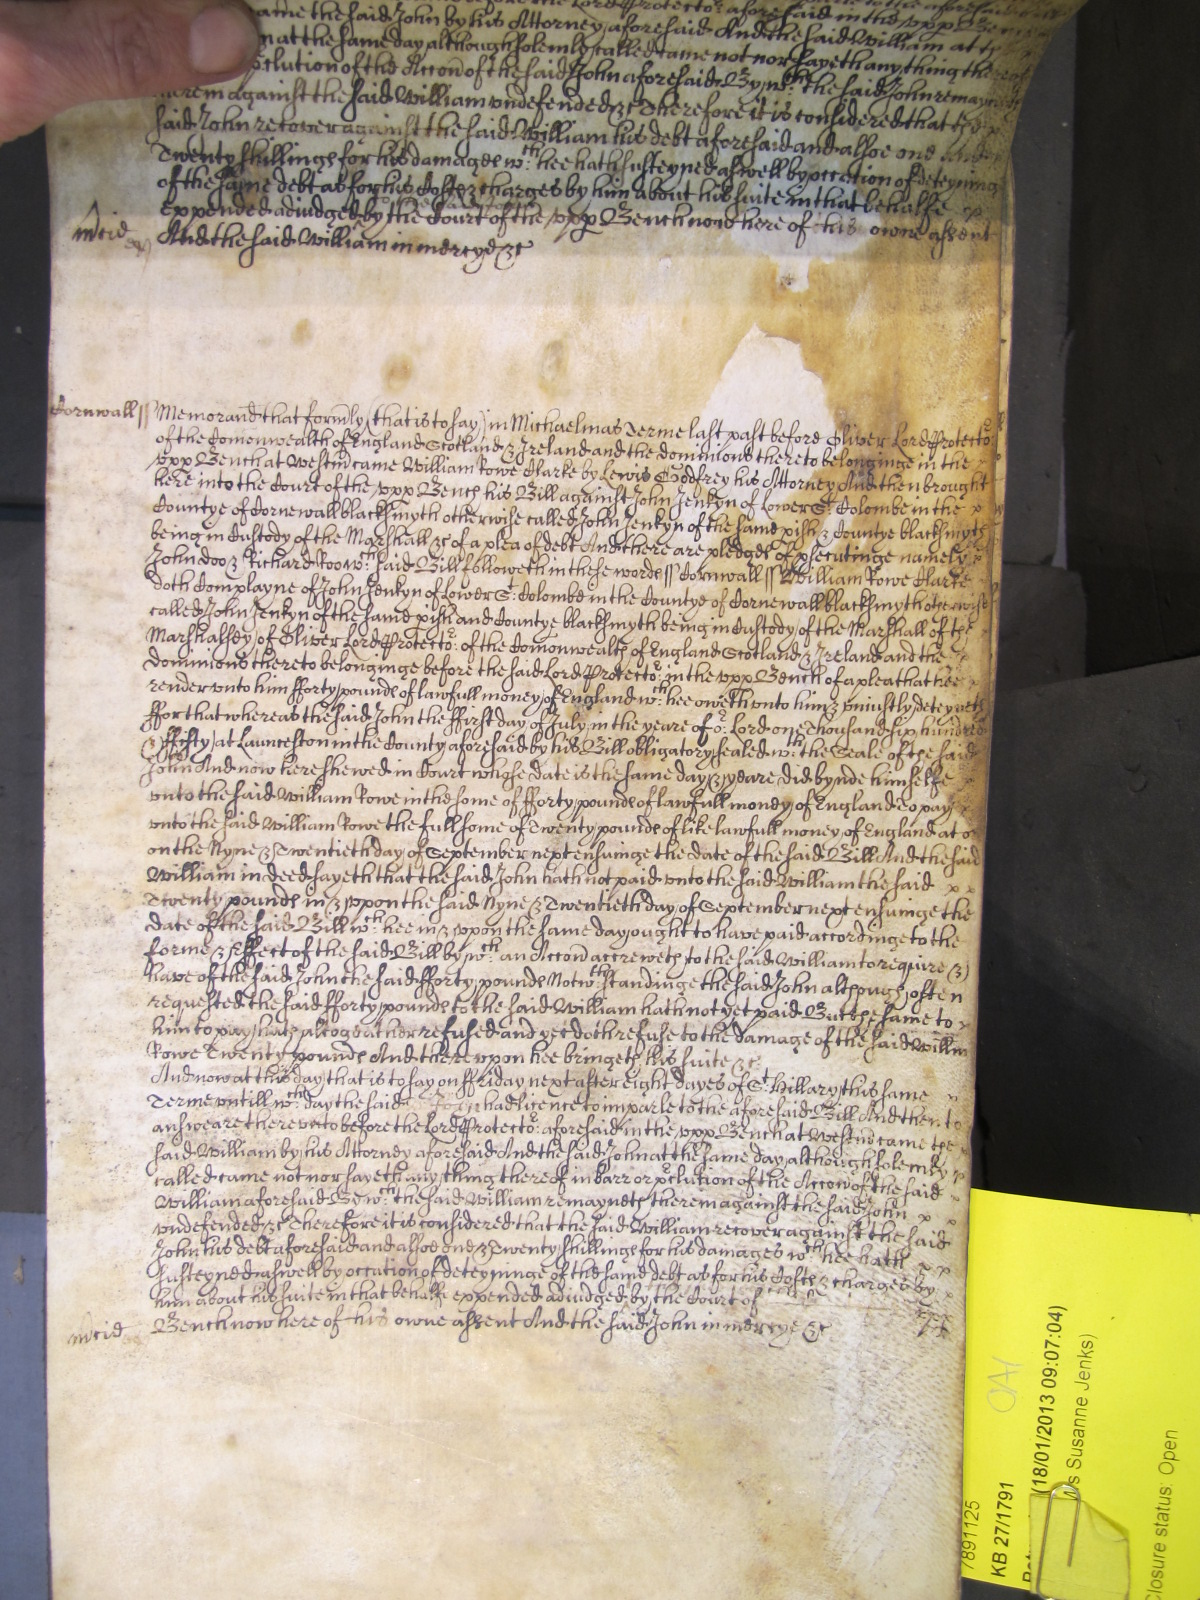 came the said John by his Attorney aforesaid And the said William at
at the same day although solemly called came not nor sayeth any thing thereof
p'clution of the Accon of the said John aforesaid By wch. the said John remayneth
therein against the said William undefended &c Therefore it is considered that the
said John recover against the said William his debt aforesaid and alsoe one and
Twenty shillings for his damages wch. hee hath susteyned aswell by occation of deteyning
of the same debt as for his Costes & charges by him about his suite in that behalfe
expended adiudged by the Court of the upp Bench now here of his owne assent
mcid And the said William in mercye &c
Cornwall ss Memorand that formly (that is to say) in Michaelmas Terme last past before Oliver Lord Protector
of the Comonwealth of England Scotland & Ireland and the dominions thereto belonginge in the
upp Bench at Westm came William Rowe Clarke by Lewis Godfrey his Attorney And then brought
here into the Court of the upp Bench his Bill against John Jenkyn of Lower St. Colombe in the
Countye of Cornewall blacksmyth otherwise called John Jenkyn of the same pish & Countye blacksmyth
being in Custody of the Marshall &c of a plea of debt And there are pledges of p'secutinge namely
John doo & Richard Roo wch. said Bill followeth in these words ss Cornwall ss William Rowe Clarke
doth Complayne of John Jenkyn of Lower St. Colombe in the Countye of Cornewall blacksmyth otherwise
called John Jenkyn of the same pish and Countye blacksmyth being in Custody of the Marshall of the
Marshalsey of Oliver Lord Protector. of the Comonwealth of England Scotland & Ireland and the
dominions thereto belonginge before the said Lord Protector. in the upp Bench of a plea that hee
render unto him fforty pounds of lawfull money of England wch. hee oweth unto him & uniustly deteyneth
ffor that whereas the said John the ffirst day of July in the yeare of or. Lord one Thousand six hundred
& ffifty at Launceston in the County aforesaid by his Bill obligatory sealed wth. the Seale of the said
John And now here shewed in Court whose date is the same day & yeare did bynde himselfe
unto the said William Rowe in the some of fforty pounds of lawfull money of England to pay
unto the said William Rowe the full some of Twenty pounds of like lawfull money of England at o
on the Nyne & Twentieth day of September next ensuinge the date of the said Bill And the said
William indeed sayeth that the said John hath not paid unto the said William the said
Twenty pounds in & uppon the said Nyne & Twentieth day of September next ensuinge the
date of the said Bill wch. hee in & upon the same day ought to have paid accordinge to the
forme & effect of the said Bill by wch. an Accon accreweth to the said William to require &
have of the said John the said fforty pounds Notwthstandinge the said John although often
requested the said fforty pounds to the said William hath not yet paid But the same to
him to pay hath altogeather refused and yet doth refuse to the damage of the said Willm
Rowe Twenty pounds And thereuppon hee bringeth this suite &c
And now at this day that is to say on ffriday next after eight dayes of St. Hillary this same
Terme untill wch. day the said John had licence to imparle to the aforesaid Bill And then to
answeare thereunto before the Lord Protector. aforesaid in the upp Bench at Westm came the
said William by his Attorney aforesaid And the said John at the same day although solemly
called came not nor sayeth any thing thereof in barr or p'clution of the Accon of the said
William aforesaid By wch. the said William remayneth therein against the said John
undefended &c Therefore it is considered that the said William recover against the said
John his debt aforesaid and alsoe one & Twenty shillings for his damages wch. hee hath
susteyned aswell by occation of deteyninge of the same debt as for his Costs & charges by
him about his suite in that behalfe expended adiudged by the Court of
mcid Bench now here of his owne assent And the said John in mercye &c
7891125
KB 27/1791
(18/01/2013 09:07:04)
s Susanne Jenks)
Closure status: Open